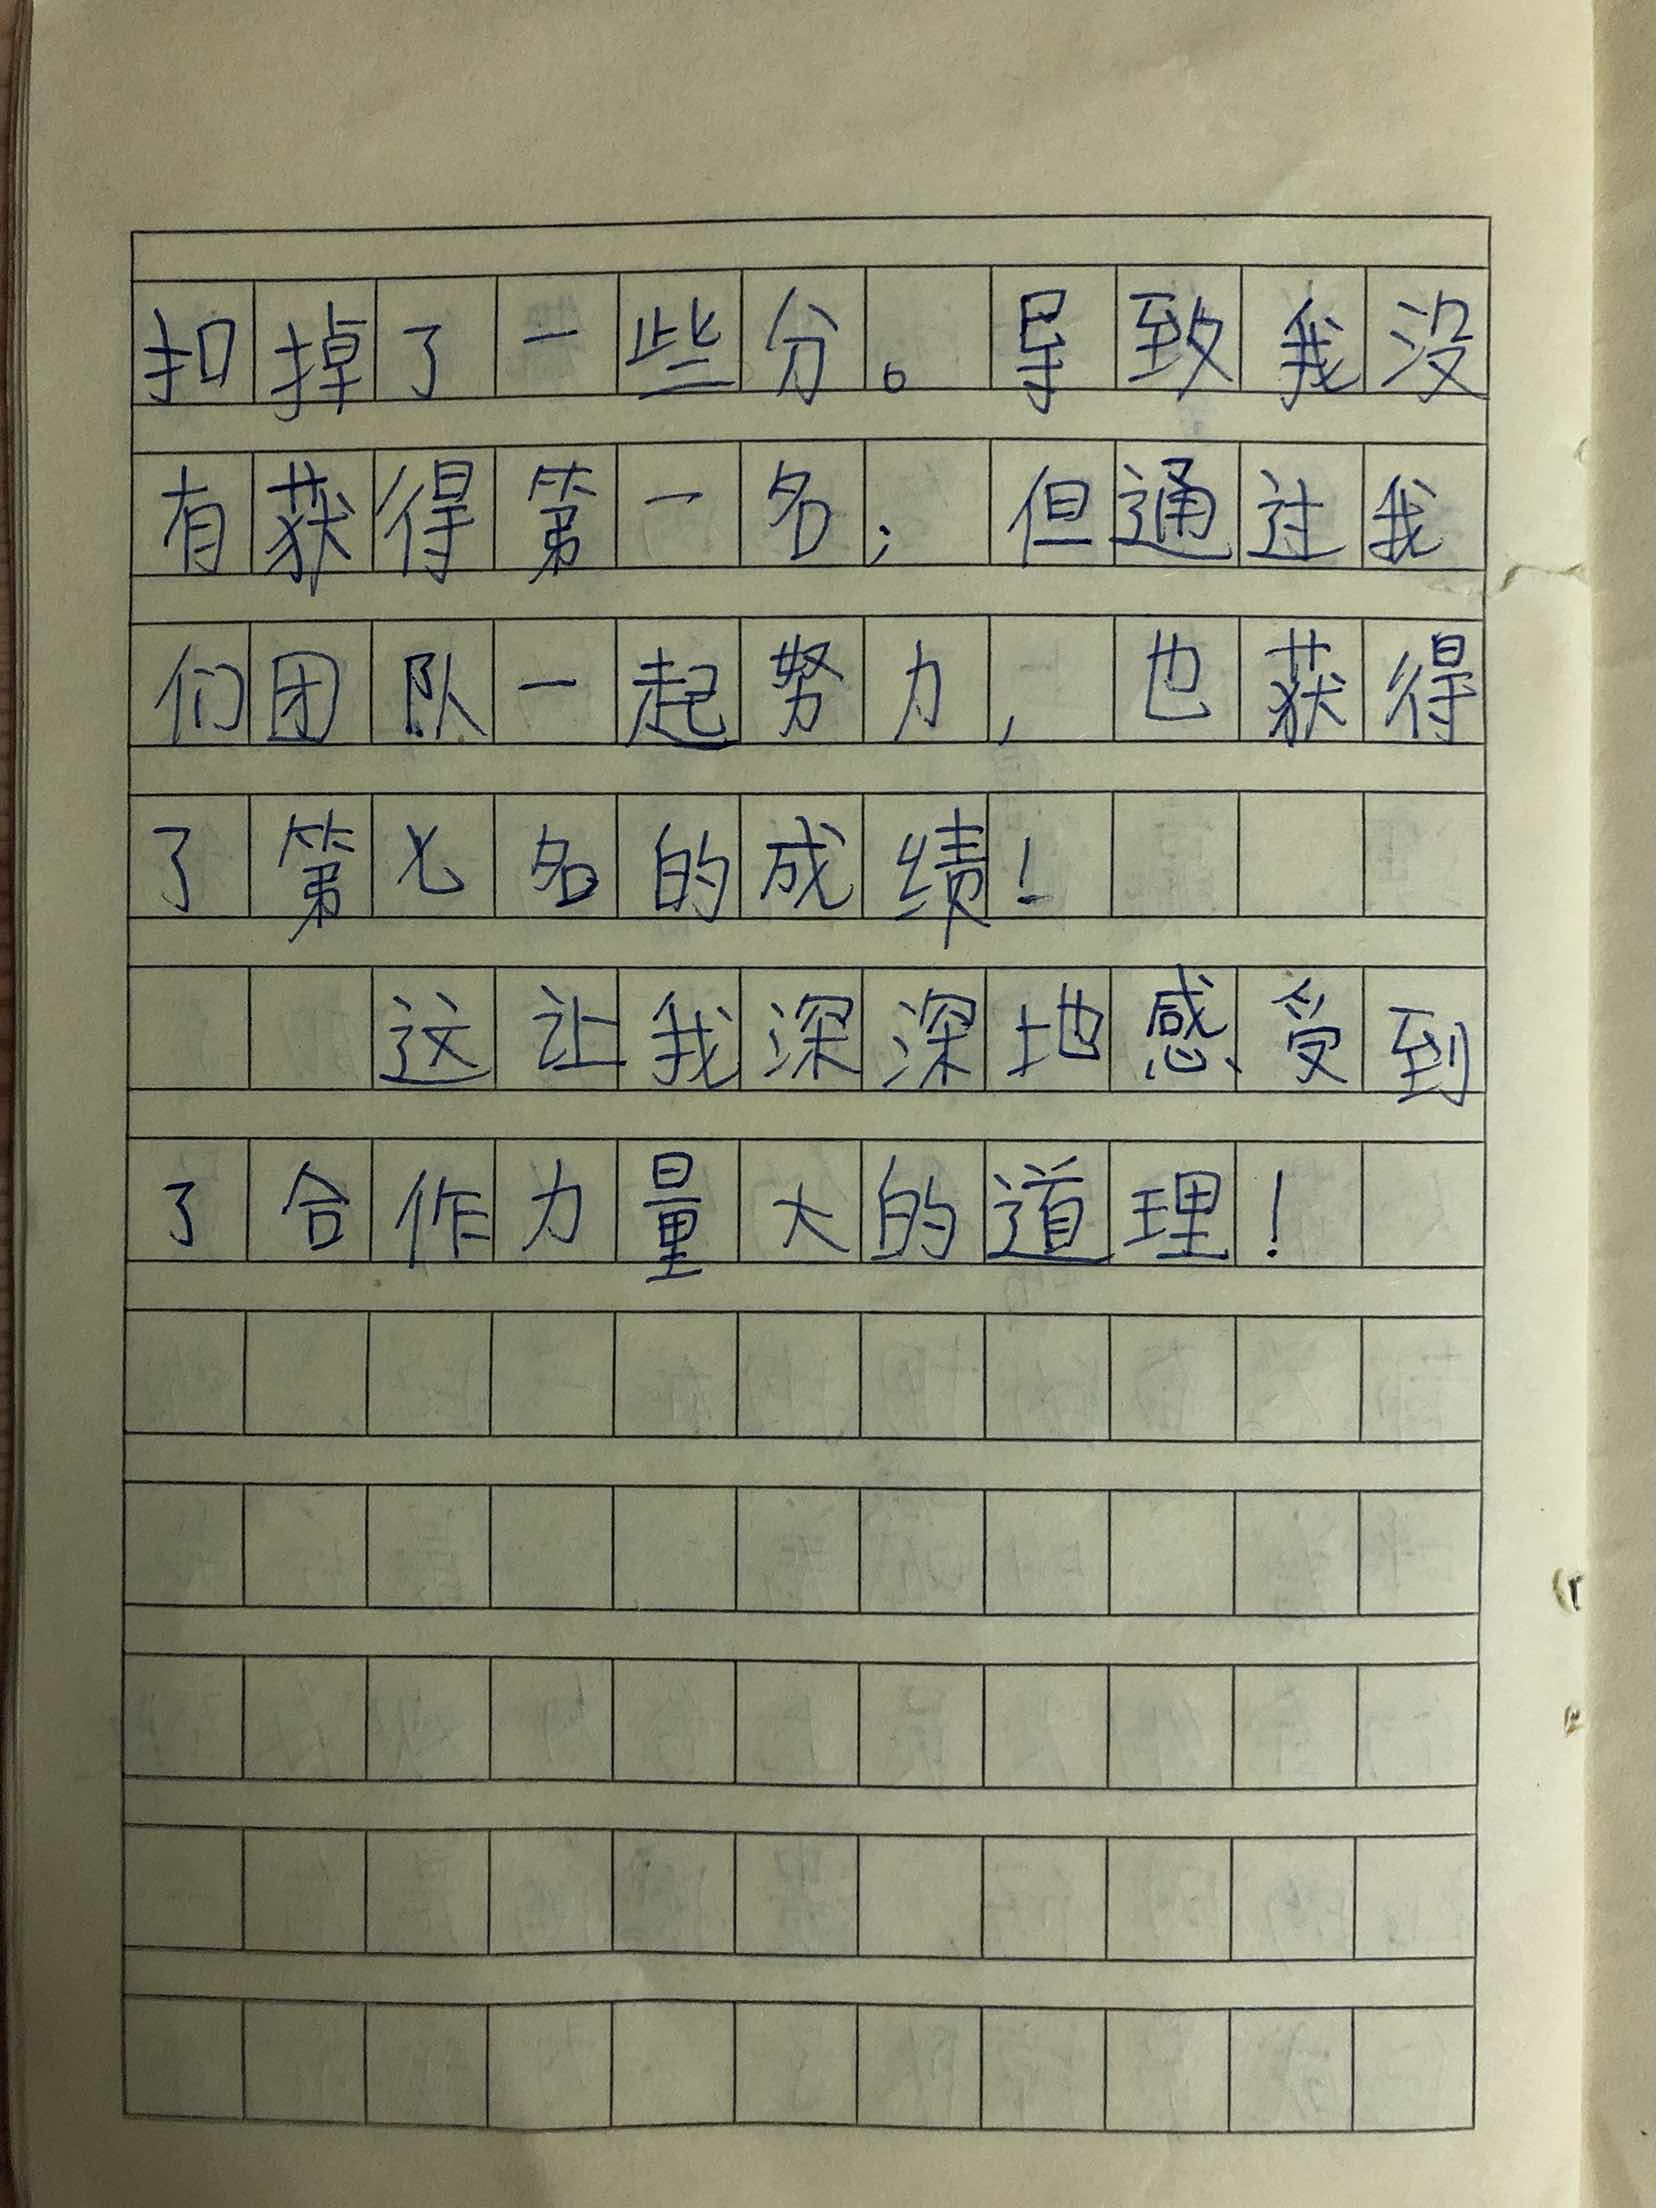 扣掉了一些分。导致我没
有获得第一名；但通过我
们团队一起努力，也获得
了第七名的成绩！
这让我深深地感受到
了合作力量大的道理！